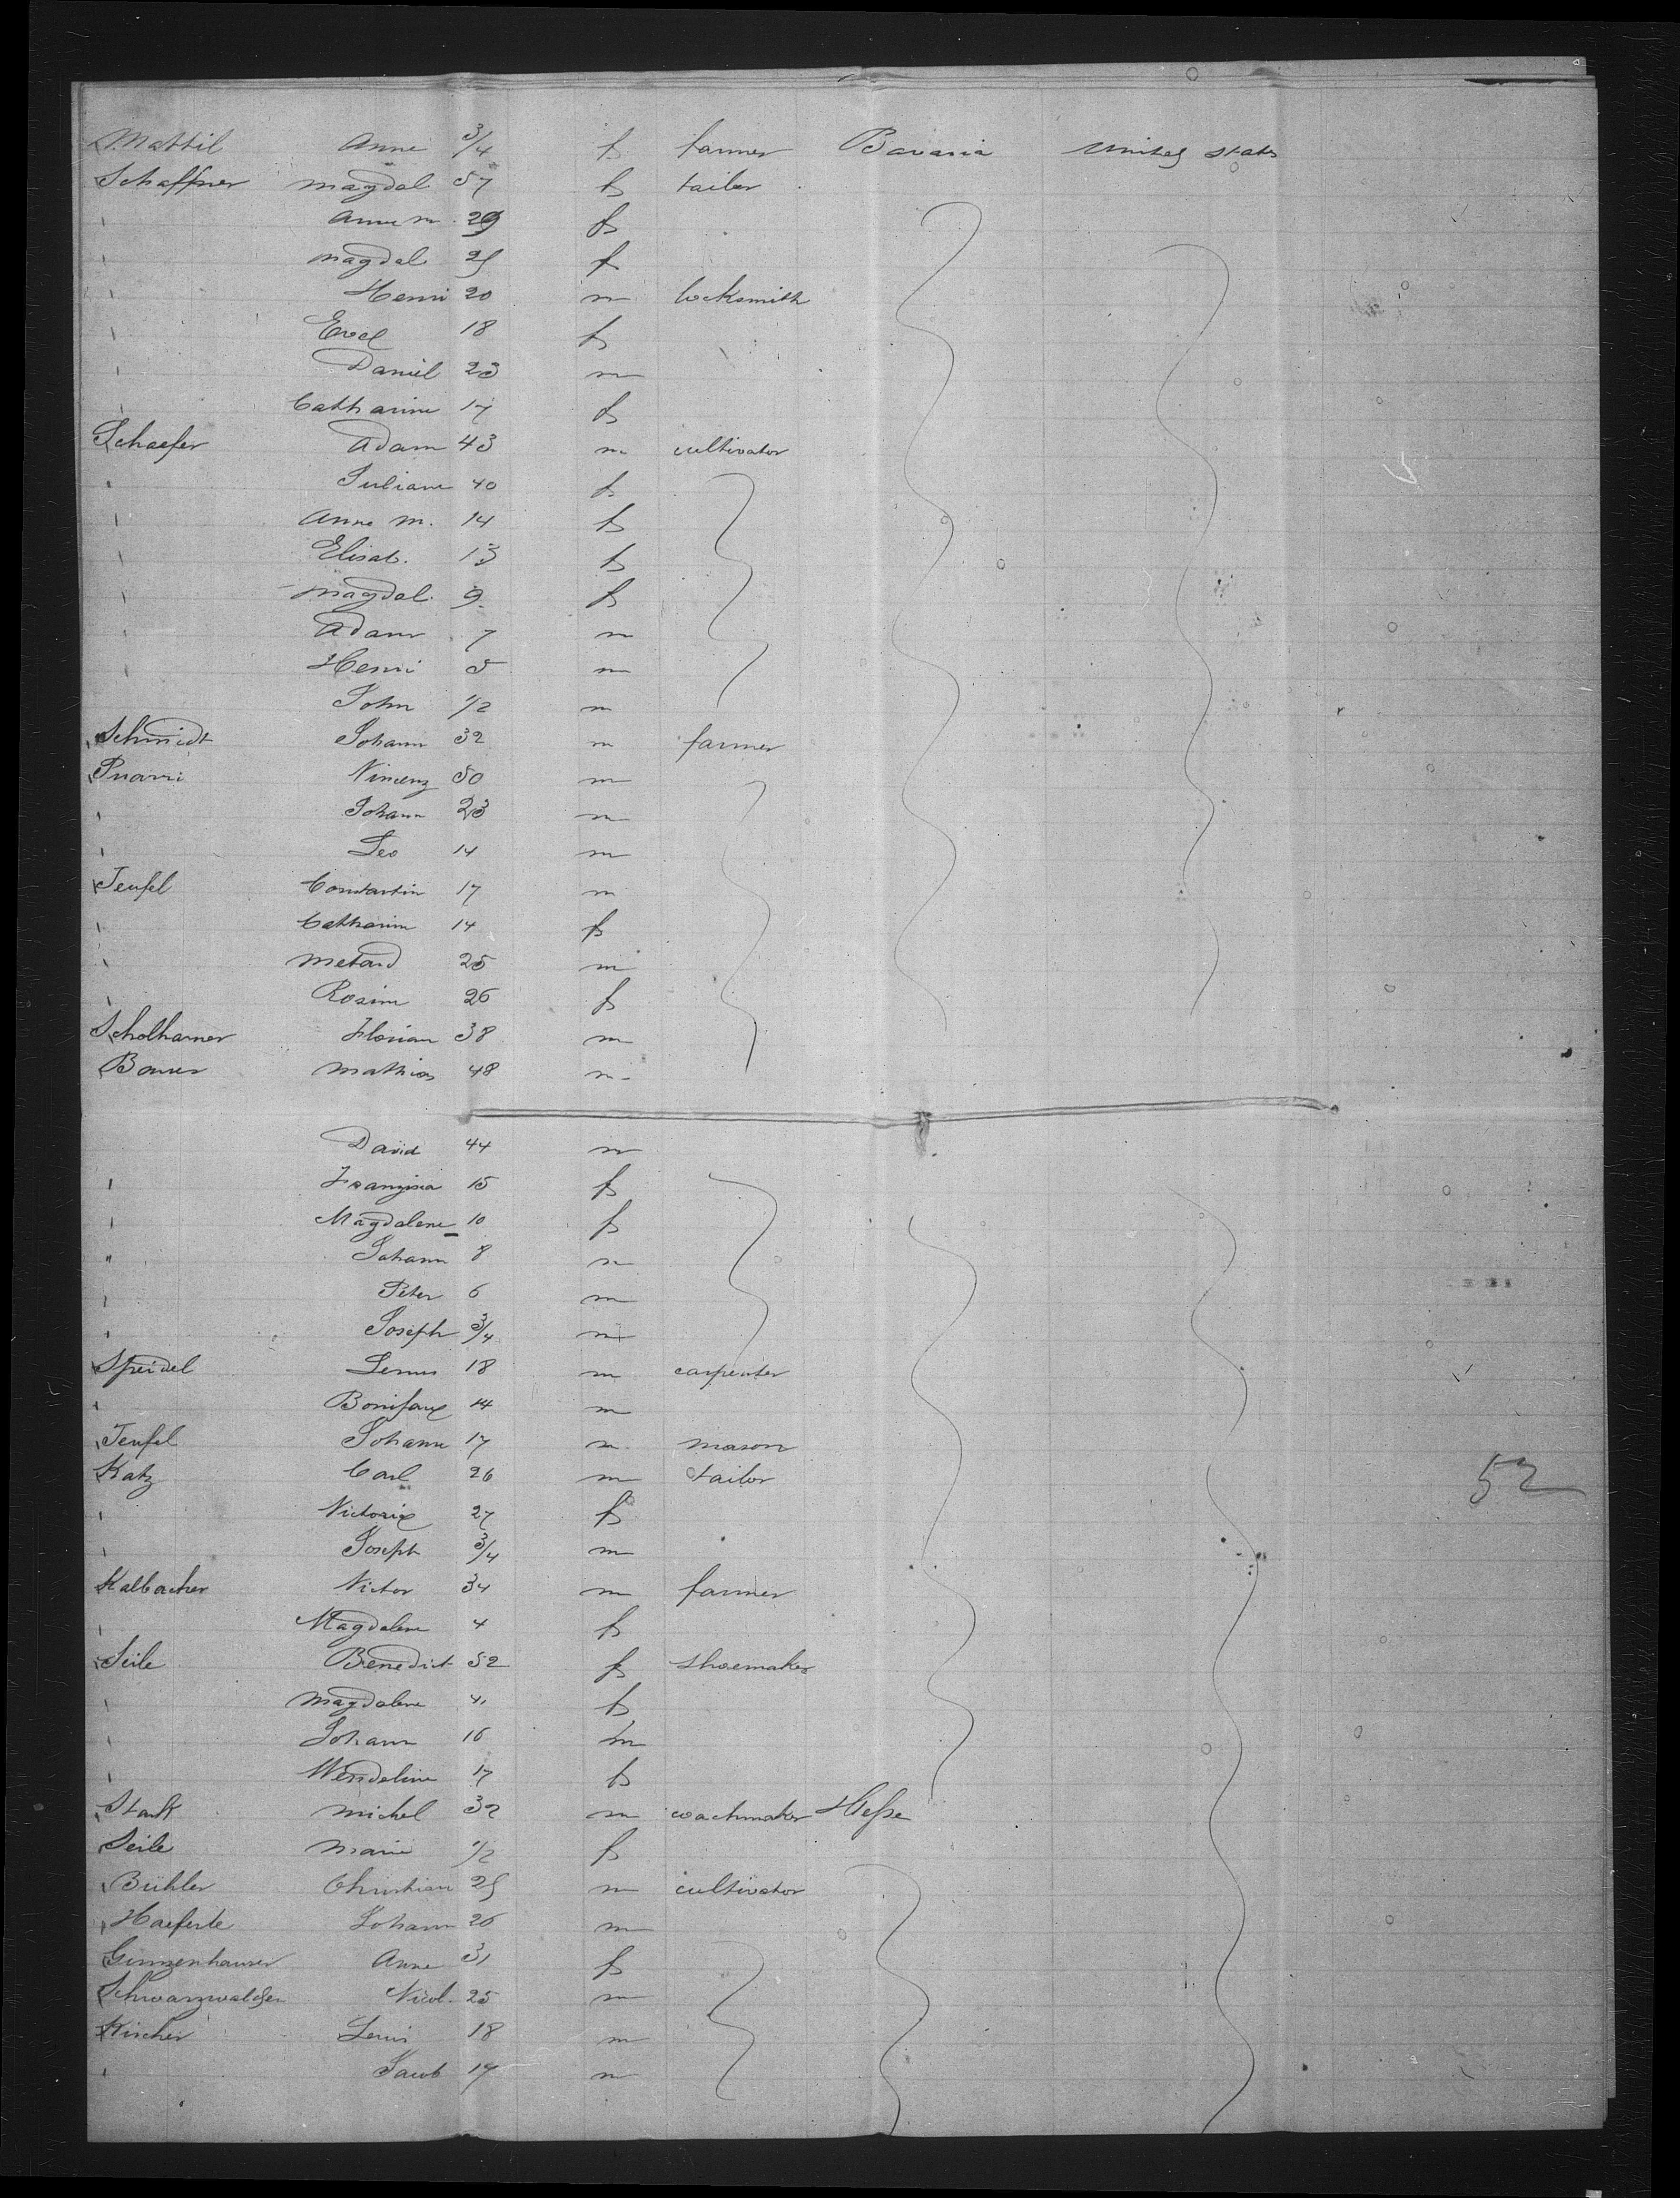 Mattil Anne 3/4 f farmer Bavaria United States
Schaffner Magdal 57 f tailor
" Anne M. 29 f
" Magdal 25 f
" Henri 20 m locksmith
" Evel 18 f
" Daniel 23 m
" Catharine 17 f
Schaefer Adam 43 m cultivator
" Juliane 40 f
" Anne M. 14 f
" Elisab. 13 f
" Magdal. 9 f
" Adam 7 m
" Henri 5 m
John 1/2 m
Schmidt Johann 32 m farmer
Vincenz 50 m
" Johann 23 m
" Leo 14 m
Teufel Constantin 17 m
" Catharine 14 f
" 25 m
" Rosine 26 f
Scholhamer Florian 38 m
Bauer Mathias 48 m
David 44 m
" Franzisca 15 f
" Magdalene 10 f
" Johann 8 m
" Peter 6 m
" Joseph 3/4 m
Speidel 18 m carpenter
" Bonifaux 14 m
Teufel Johann 17 m mason
Katz Carl 26 m tailor
52
" Victoria 27 f
" Joseph 3/4 m
Kalbacher Victor 34 m farmer
" Magdalene 4 f
Seile Benedict 52 f shoemaker
" Magdalene 41 f
" Johann 16 m
" Wendeline 17 f
Stark Michel 32 m coachmaker Hesse
Seile Marie 1/2 f
Bühler Christian 25 m cultivator
Haeferle Johann 26 m
Gunzenhauser Anne 31 f
Schwarzwalder Nicol. 25 m
Kircher Louis 18 m
" Jacob 17 m